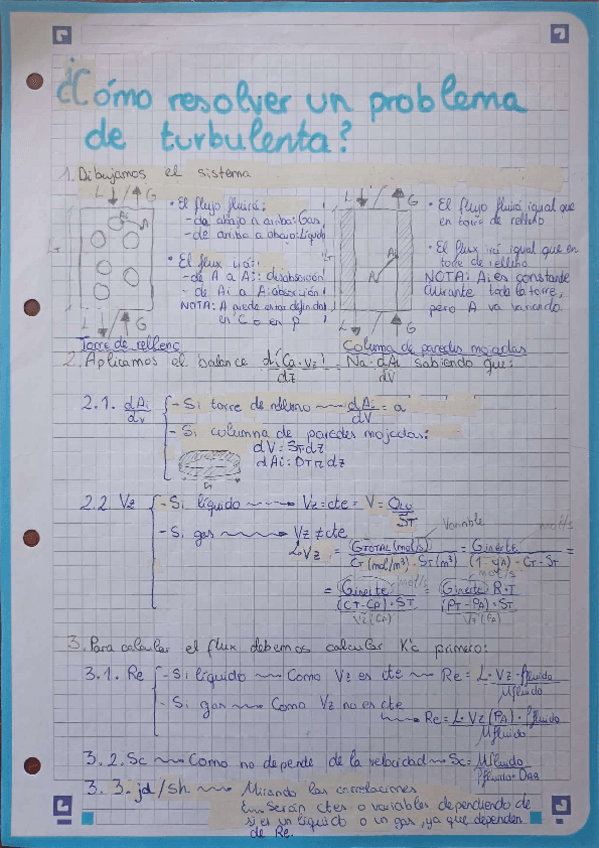 ¿Cómo resolver un problema
de turbulenta?
1. Dibujamos el sistema
L G
• El flujo fluirá:
- de abajo a arriba: Gas
- de arriba a abajo: Líquido
• El flux irá:
- de A a Ai: desabsorción
- de Ai a A: absorción
NOTA: A puede estar definida
en C o en P
L G
Torre de relleno
L G
Ai
A
L G
Columna de paredes mojadas
• El flujo fluirá igual que
en torre de relleno
• El flux irá igual que en
torre de relleno
NOTA: Ai es constante
durante toda la torre,
pero A va variando.
2. Aplicamos el balance d(CA·Vz)/dz = NA·dAi/dV sabiendo que:
2.1. dAi/dV
- Si torre de relleno ⟿ dAi/dV = a
- Si columna de paredes mojadas:
dV = ST dz
dAi = DT π dz
2.2 Vz
- Si líquido ⟿ Vz = cte = V = QLV/ST
- Si gas ⟿ Vz ≠ cte
Variable
mol/s
↳ Vz = GTOTAL (mol/s)/CT (mol/m³)·ST (m²) = Ginerte/(1-yA)·CT·ST =
= Ginerte/(CT-CA)·ST = Ginerte R·T/(PT-PA)·ST
mol/s mol/s
Vz(CA) Vz(PA)
3. Para calcular el flux debemos calcular K'c primero:
3.1. Re
- Si líquido ⟿ Como Vz es cte ⟿ Re = L·Vz·ρfluido/μfluido
- Si gas ⟿ Como Vz no es cte
⟿ Re = L·Vz(PA)·ρfluido/μfluido
3.2. Sc ⟿ Como no depende de la velocidad ⟿ Sc = μfluido/ρfluido·DAB
3.3. jd/Sh ⟿ Mirando las correlaciones
Serán ctes o variables dependiendo de
si es un líquido o un gas, ya que dependen
de Re.